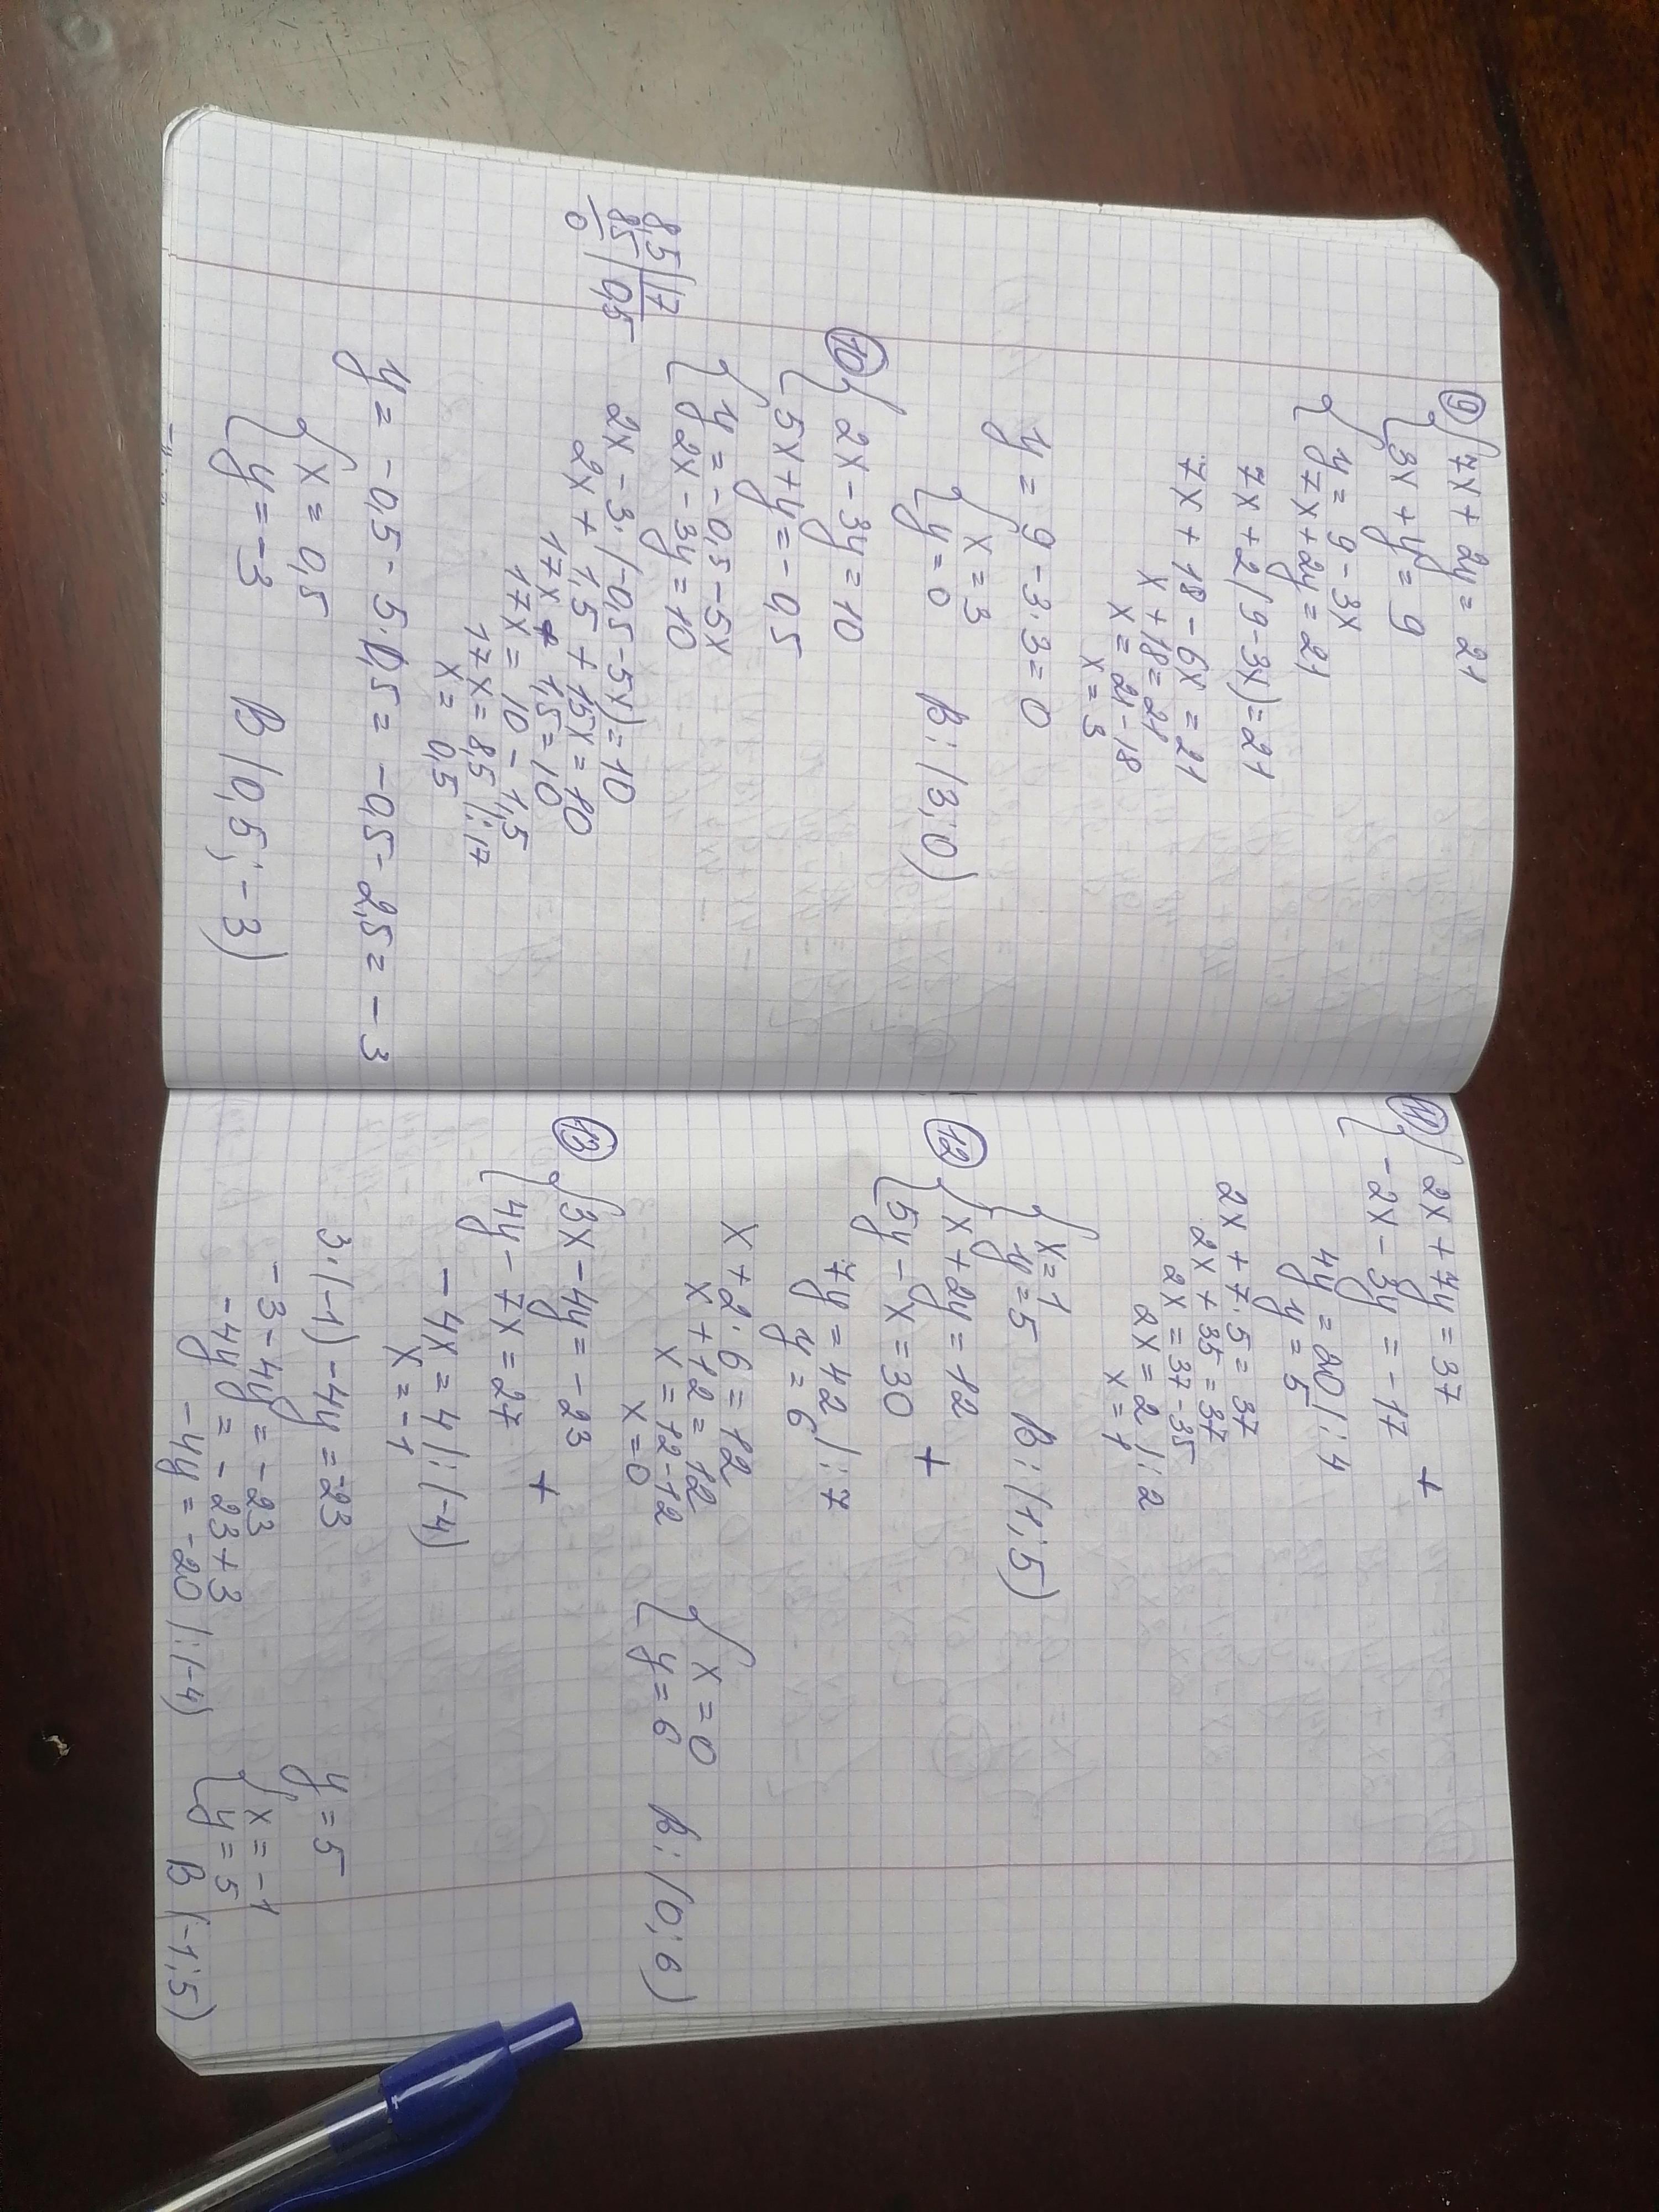 9 { 7x + 2y = 21
3x + y = 9
{ y = 9 - 3x
7x + 2y = 21
7x + 2(9-3x) = 21
7x + 18 - 6x = 21
x + 18 = 21
x = 21 - 18
x = 3
y = 9 - 3·3 = 0
{ x = 3
y = 0 В: (3; 0)
10 { 2x - 3y = 10
5x + y = -0,5
{ y = -0,5 - 5x
2x - 3y = 10
2x - 3·(-0,5-5x) = 10
8,5 | 17
85 | 0,5
0
2x + 1,5 + 15x = 10
17x + 1,5 = 10
17x = 10 - 1,5
17x = 8,5 |:17
x = 0,5
y = -0,5 - 5·0,5 = -0,5 - 2,5 = -3
{ x = 0,5
y = -3 В (0,5; -3)
11 { 2x + 7y = 37
-2x - 3y = -17 +
4y = 20 |:4
y = 5
2x + 7·5 = 37
2x + 35 = 37
2x = 37 - 35
2x = 2 |:2
x = 1
{ x = 1
y = 5 В: (1; 5)
12 { x + 2y = 12
5y - x = 30 +
7y = 42 |:7
y = 6
x + 2·6 = 12
x + 12 = 12
x = 12 - 12
x = 0
{ x = 0
y = 6 В: (0; 6)
13 { 3x - 4y = -23
4y - 7x = 27 +
-4x = 4 |:(-4)
x = -1
3·(-1) - 4y = -23
-3 - 4y = -23
-4y = -23 + 3
-4y = -20 |:(-4)
y = 5
{ x = -1
y = 5 В (-1; 5)